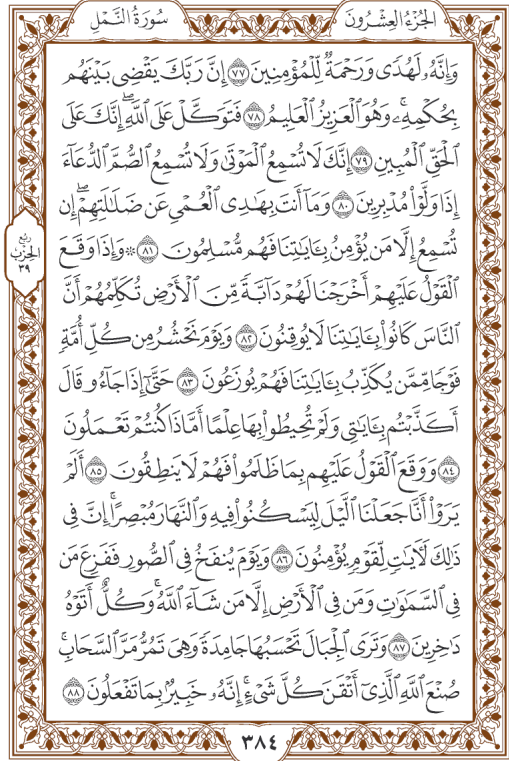 الجُزْءُ العِشْرُونَ
سُورَةُ النَّمْلِ
وَإِنَّهُۥ لَهُدًى وَرَحْمَةٌ لِّلْمُؤْمِنِينَ ٧٧ إِنَّ رَبَّكَ يَقْضِى بَيْنَهُم
بِحُكْمِهِۦۚ وَهُوَ ٱلْعَزِيزُ ٱلْعَلِيمُ ٧٨ فَتَوَكَّلْ عَلَى ٱللَّهِۖ إِنَّكَ عَلَى
ٱلْحَقِّ ٱلْمُبِينِ ٧٩ إِنَّكَ لَا تُسْمِعُ ٱلْمَوْتَىٰ وَلَا تُسْمِعُ ٱلصُّمَّ ٱلدُّعَآءَ
إِذَا وَلَّوْا۟ مُدْبِرِينَ ٨٠ وَمَآ أَنتَ بِهَٰدِى ٱلْعُمْىِ عَن ضَلَٰلَتِهِمْۖ إِن
تُسْمِعُ إِلَّا مَن يُؤْمِنُ بِـَٔايَٰتِنَا فَهُم مُّسْلِمُونَ ٨١ ۞ وَإِذَا وَقَعَ
ٱلْقَوْلُ عَلَيْهِمْ أَخْرَجْنَا لَهُمْ دَآبَّةً مِّنَ ٱلْأَرْضِ تُكَلِّمُهُمْ أَنَّ
ٱلنَّاسَ كَانُوا۟ بِـَٔايَٰتِنَا لَا يُوقِنُونَ ٨٢ وَيَوْمَ نَحْشُرُ مِن كُلِّ أُمَّةٍ
فَوْجًا مِّمَّن يُكَذِّبُ بِـَٔايَٰتِنَا فَهُمْ يُوزَعُونَ ٨٣ حَتَّىٰٓ إِذَا جَآءُو قَالَ
أَكَذَّبْتُم بِـَٔايَٰتِى وَلَمْ تُحِيطُوا۟ بِهَا عِلْمًا أَمَّاذَا كُنتُمْ تَعْمَلُونَ
٨٤ وَوَقَعَ ٱلْقَوْلُ عَلَيْهِم بِمَا ظَلَمُوا۟ فَهُمْ لَا يَنطِقُونَ ٨٥ أَلَمْ
يَرَوْا۟ أَنَّا جَعَلْنَا ٱلَّيْلَ لِيَسْكُنُوا۟ فِيهِ وَٱلنَّهَارَ مُبْصِرًاۚ إِنَّ فِى
ذَٰلِكَ لَـَٔايَٰتٍ لِّقَوْمٍ يُؤْمِنُونَ ٨٦ وَيَوْمَ يُنفَخُ فِى ٱلصُّورِ فَفَزِعَ مَن
فِى ٱلسَّمَٰوَٰتِ وَمَن فِى ٱلْأَرْضِ إِلَّا مَن شَآءَ ٱللَّهُۚ وَكُلٌّ أَتَوْهُ
دَٰخِرِينَ ٨٧ وَتَرَى ٱلْجِبَالَ تَحْسَبُهَا جَامِدَةً وَهِىَ تَمُرُّ مَرَّ ٱلسَّحَابِۚ
صُنْعَ ٱللَّهِ ٱلَّذِىٓ أَتْقَنَ كُلَّ شَىْءٍۚ إِنَّهُۥ خَبِيرٌۢ بِمَا تَفْعَلُونَ ٨٨
رُبْعُ
الحِزْبِ
٣٩
٣٨٤